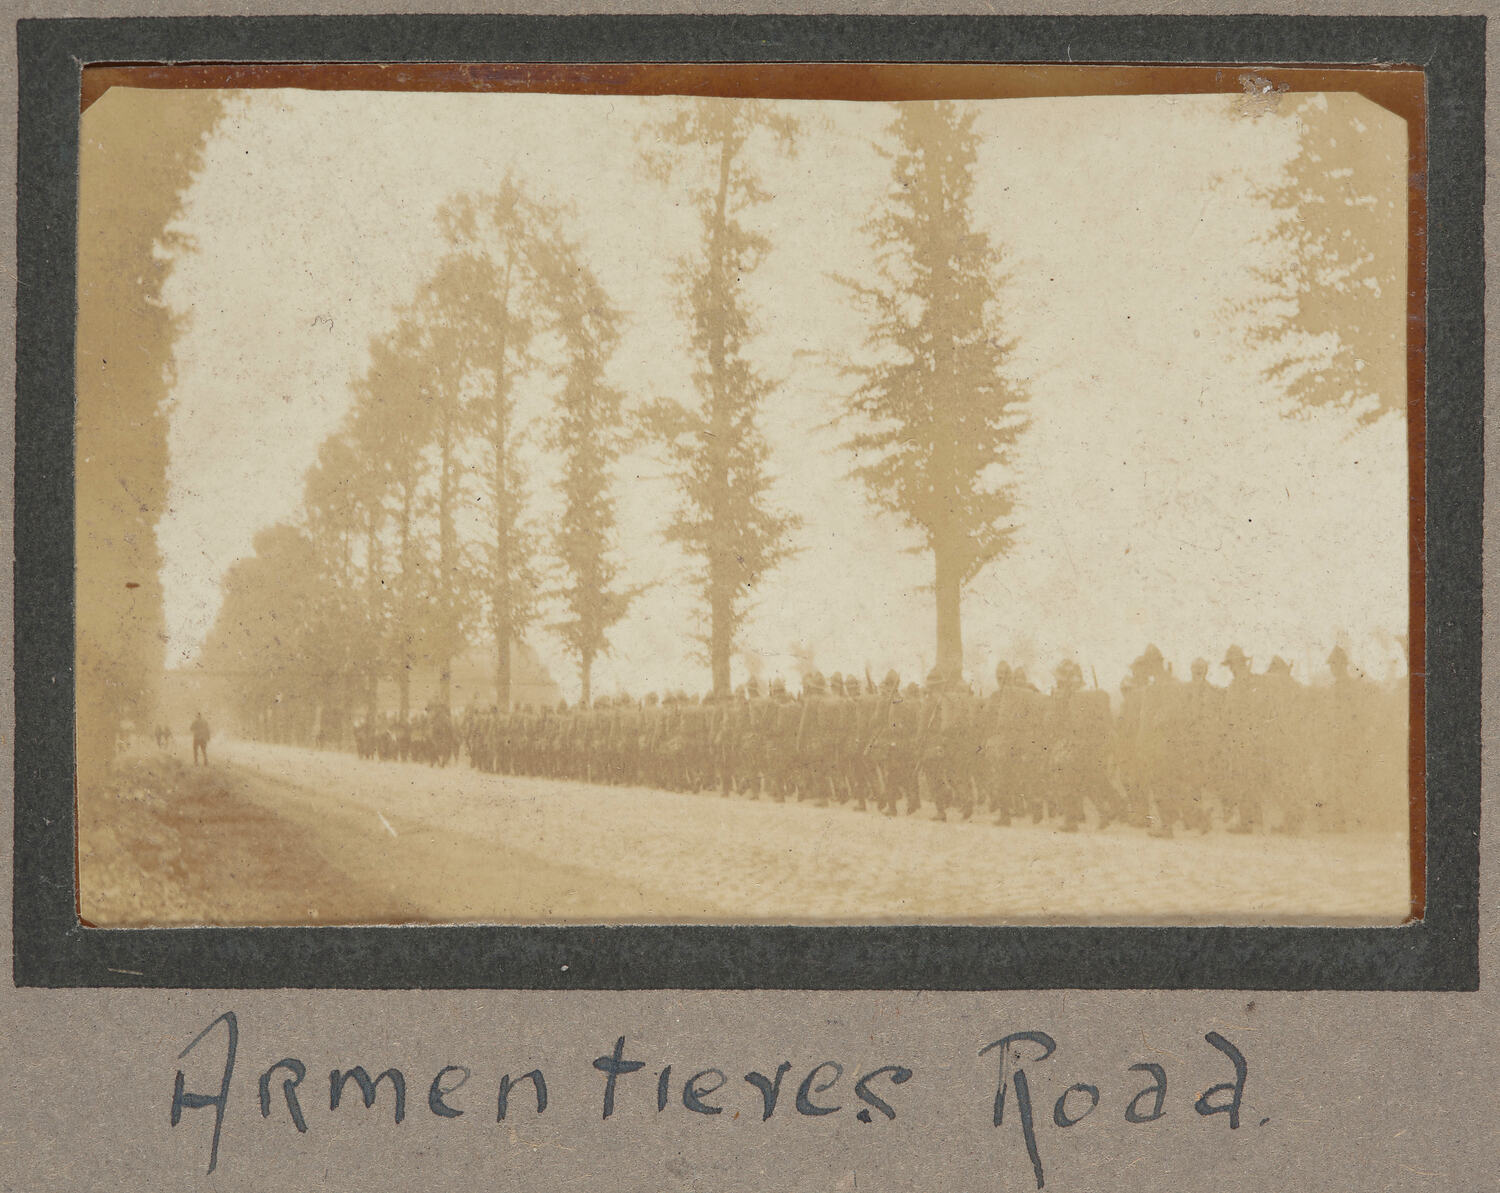 Armentieres Road.